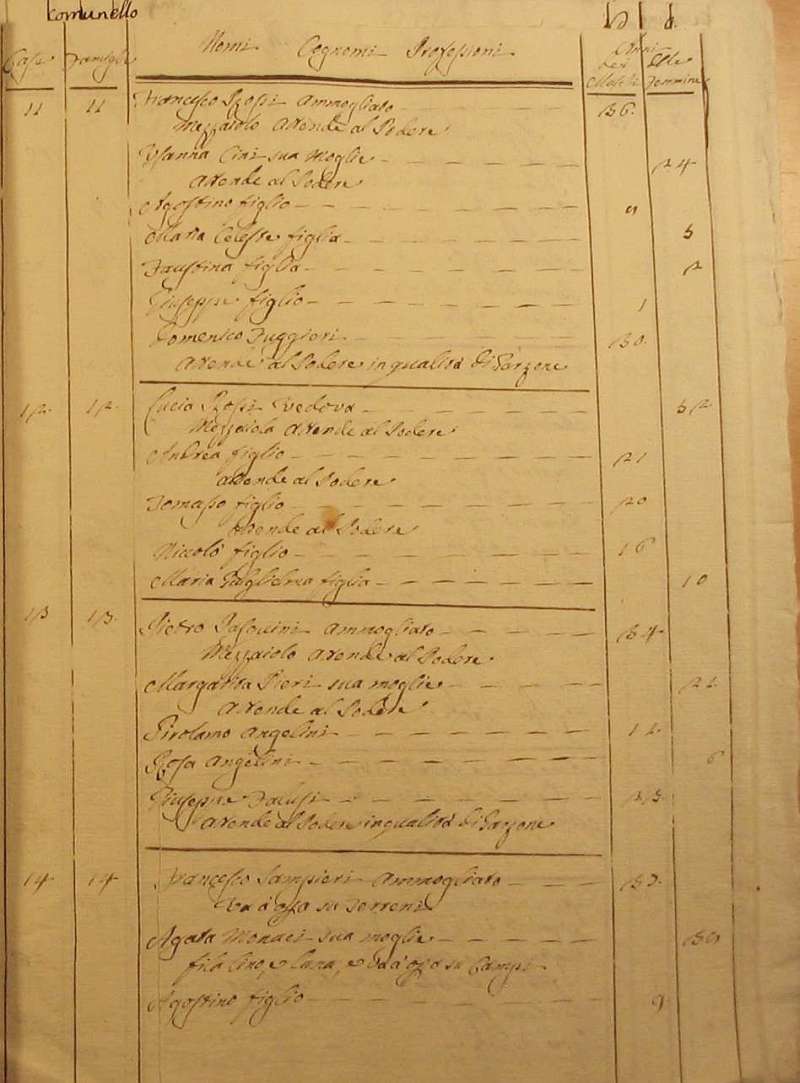 Comunello
Case Famiglie Nomi Cognomi Professioni Anni
dei Maschi delle Femmine
11 11 Francesco Rossi Ammogliato 36.
Mezzaiolo Attende al Podere
Cini sua Moglie 24
Attende al Podere
Agostino figlio
Maria Celeste figlia 5
Faustina figlia 2
Giuseppe figlio 1
Domenico Fuggieri 30.
Attende al Podere in qualità di Garzone
12. 12. Lucia Rossi Vedova 52
Mezzaiola Attende al Podere
Andrea figlio 21
Attende al Podere
Tomaso figlio 20
Attende al Podere
Niccolò figlio 16
Maria Guglielma figlia 10
13 13. Pietro Ammogliato 34
Mezzaiolo Attende al Podere
Margarita Pieri sua moglie
Attende al Podere
Girolamo Angelini
Rosa Angelini 6
Giuseppe
Attende al Podere in qualità di Garzone
14 14 Francesco Sampieri Ammogliato
Va a opra su Terreni
Agata Monaci sua moglie
fila lino, e lana, e va a opra su Campi
Agostino figlio 9.